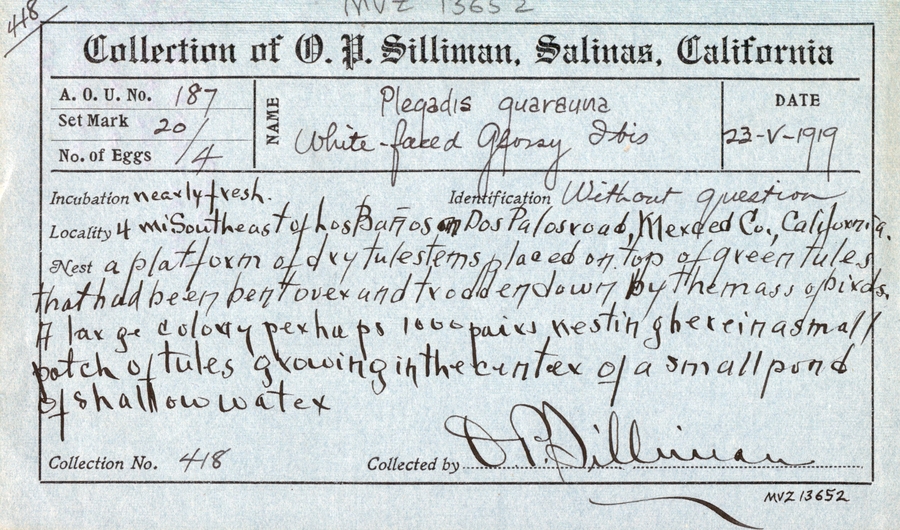 MVZ 13652
418
Collection of O. P. Silliman, Salinas, California
A. O. U. No. 187
Set Mark 20/
No. of Eggs /4
NAME
Plegadis guarauna
White-faced Glossy Ibis
DATE
23-V-1919
Incubation nearly fresh. Identification Without question
Locality 4 mi Southeast of Los Baños on Dos Palos road, Merced Co., California.
Nest a platform of dry tule stems placed on top of green tules
that had been bent over and trodden down by the mass of birds.
A large colony perhaps 1000 pairs nesting here in a small
patch of tules growing in the center of a small pond
of shallow water
Collection No. 418 Collected by O P. Silliman
MVZ 13652